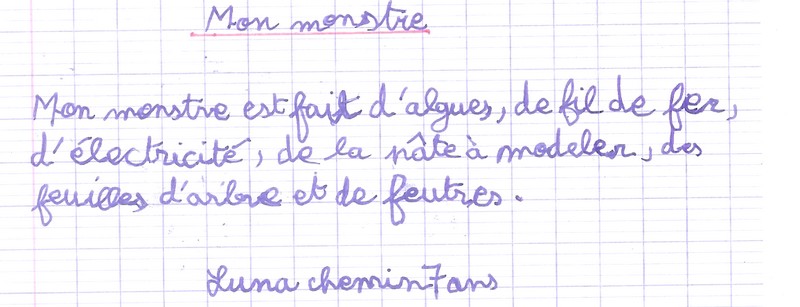 Mon monstre
Mon monstre est fait d'algues, de fil de fer,
d'électricité, de la pâte à modeler, des
feuilles d'arbre et de feutres.
Luna chemin 7 ans